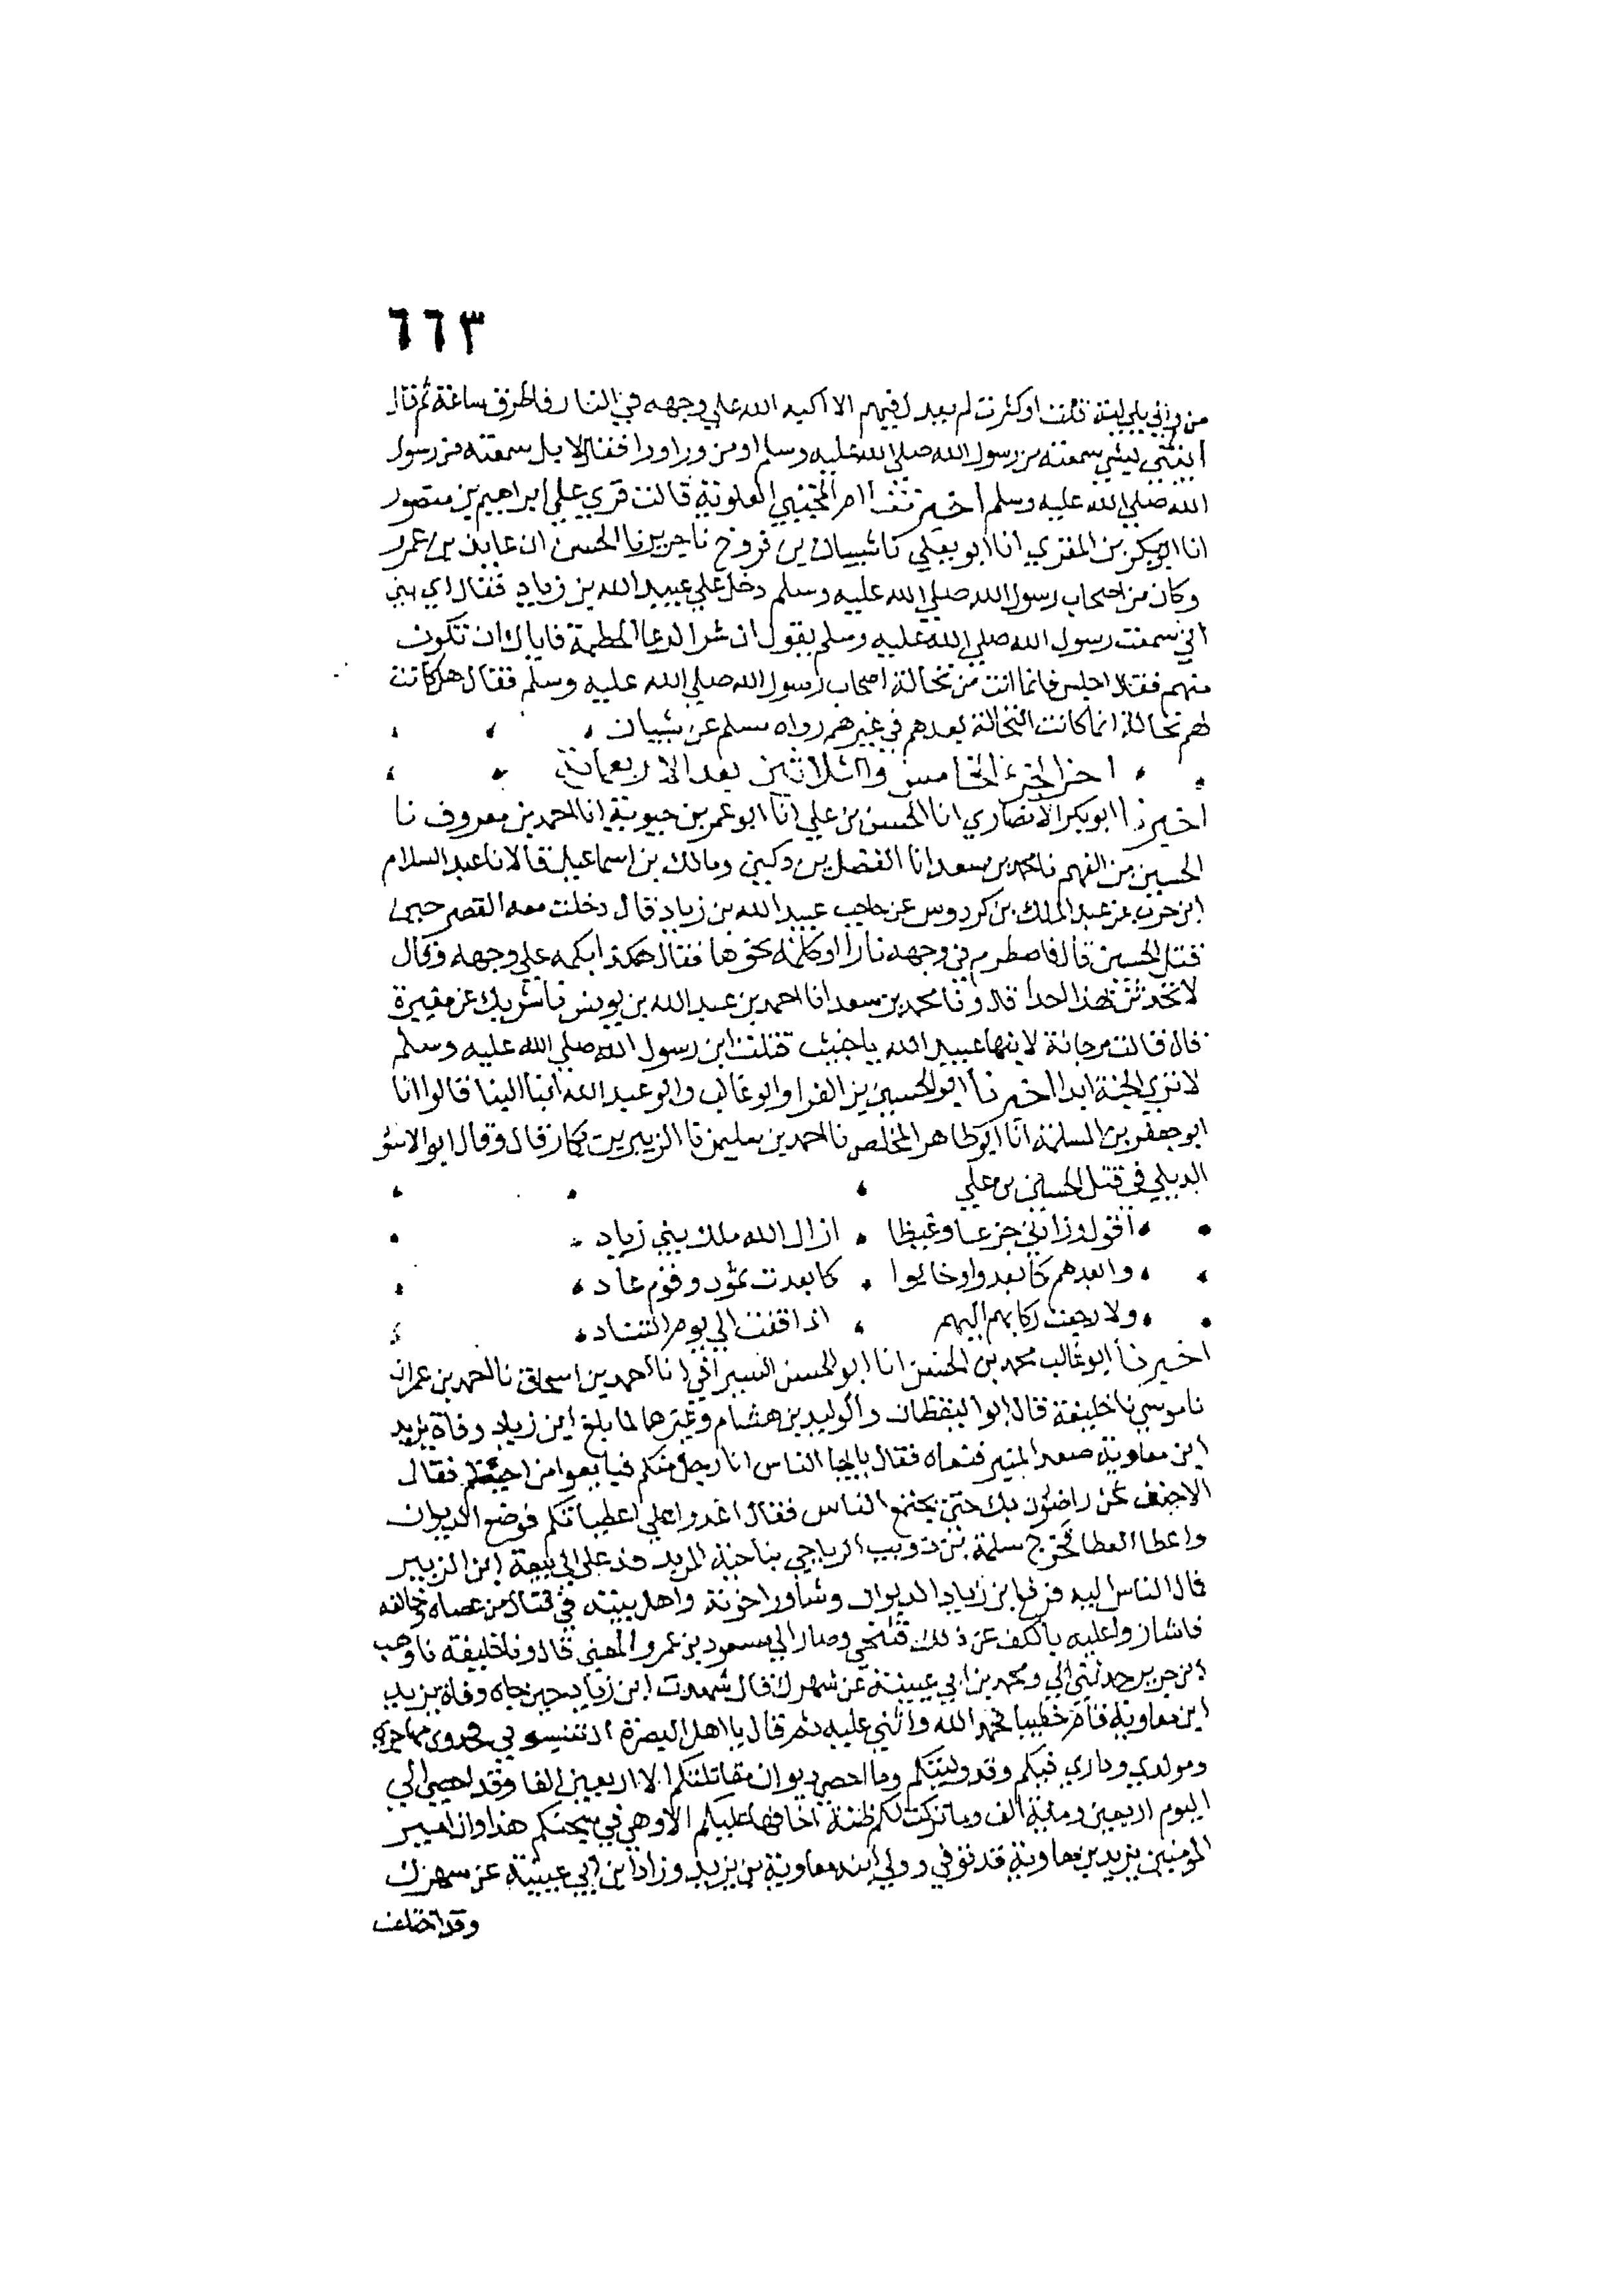 ٦٦٣
من والي يلي لية قلت اوكثرت لم يعدل فيهم الا اكبه الله علي وجهه في النار فاطرق ساعة ثم قال
الله صلي الله عليه وسلم اخبرتنا ام المجتبي العلوية قالت قري علي ابراهيم بن منصور
انا ابو بكر بن المقري انا ابو يعلي نا شيبان بن فروخ نا جرير نا الحسن ان عايذ بن عمرو
وكان من اصحاب رسول الله صلي الله عليه وسلم دخل علي عبيد الله بن زياد فقال اي بني
اني سمعت رسول الله صلي الله عليه وسلم يقول ان شر الرعا الحطمة فاياك ان تكون
منهم فقال اجلس فانما انت من نخالة اصحاب رسول الله صلي الله عليه وسلم فقال هل كانت
لهم نخالة انما كانت النخالة بعدهم في غيرهم رواه مسلم عن شيبان
اخر الجزء الخامس والثلاثين بعد الاربعماية
اخبرنا ابو بكر الانصاري انا الحسن بن علي انا ابو عمر بن حيوية انا احمد بن معروف نا
الحسين بن الفهم نا محمد بن سعد انا الفضل بن دكين ومالك بن اسماعيل قالا نا عبد السلام
ابن حرب عن عبد الملك بن كردوس عن حاجب عبيد الله بن زياد قال دخلت معه القصر حين
قتل الحسين قال فاضطرم في وجهه نارا او كلمة نحوها فقال هكذا بكمه علي وجهه وقال
لا تحدثن بهذا احدا قال ونا محمد بن سعد انا احمد بن عبد الله بن يونس نا شريك عن مغيرة
قال قالت مرجانة لابنها عبيد الله يا خبيث قتلت ابن رسول الله صلي الله عليه وسلم
لا تري الجنة ابدا اخبرنا ابو الحسين بن الفرا وابو غالب وابو عبد الله ابنا البنا قالوا انا
ابو جعفر بن المسلمة انا ابو طاهر المخلص نا احمد بن سليمن نا الزبير بن بكار قال وقال ابو الاسود
الديلي في قتل الحسين بن علي
اقول وزادني جزعا وغيظا ازال الله ملك بني زياد
وابعدهم كما بعدوا وخانوا كما بعدت ثمود وقوم عاد
ولا رجعت ركابهم اليهم اذا قفت الي يوم التناد
اخبرنا ابو غالب محمد بن الحسن انا ابو الحسن السيرافي انا احمد بن اسحاق نا احمد بن عمران
نا موسي نا خليفة قال ابو اليقظان والوليد بن هشام وغيرهما لما بلغ ابن زياد وفاة يزيد
ابن معاوية صعد المنبر فنعاه فقال يا ايها الناس انا رجل منكم فبايعوا من احببتم فقال
الاحنف نحن راضون بك حتي يجتمع الناس فقال اغدوا علي اعطياتكم فوضع الديوان
واعطا العطا فخرج سلمة بن ذويب الرياحي بناحية المربد فدعا الي بيعة ابن الزبير
فال الناس اليه فرفع ابن زياد الديوان وشاور اخوته واهل بيته في قتال من عصاه وخالفه
فاشاروا عليه بالكف عن ذلك فتنحي وصار الي مسعود بن عمرو المعني قال ونا خليفة نا وهب
ابن جرير حدثني ابي ومحمد بن ابي عيينة عن شهرك قال شهدت ابن زياد حين جاه وفاة يزيد
ابن معاوية فقام خطيبا فحمد الله واثني عليه ثم قال يا اهل البصرة
ومولدي وداري فيكم وقد وليتكم وما احصي ديوان مقاتلتكم الا اربعين الفا وقد احصي الي
اليوم اربعين ومائة الف وما تركت لكم ظنة اخافها عليكم الا وهي في سجنكم هذا وان امير
المومنين يزيد بن معاوية قد توفي وولي ابنه معاوية بن يزيد وزاد ابن ابي عيينة عن سهرك
وقد اختلف